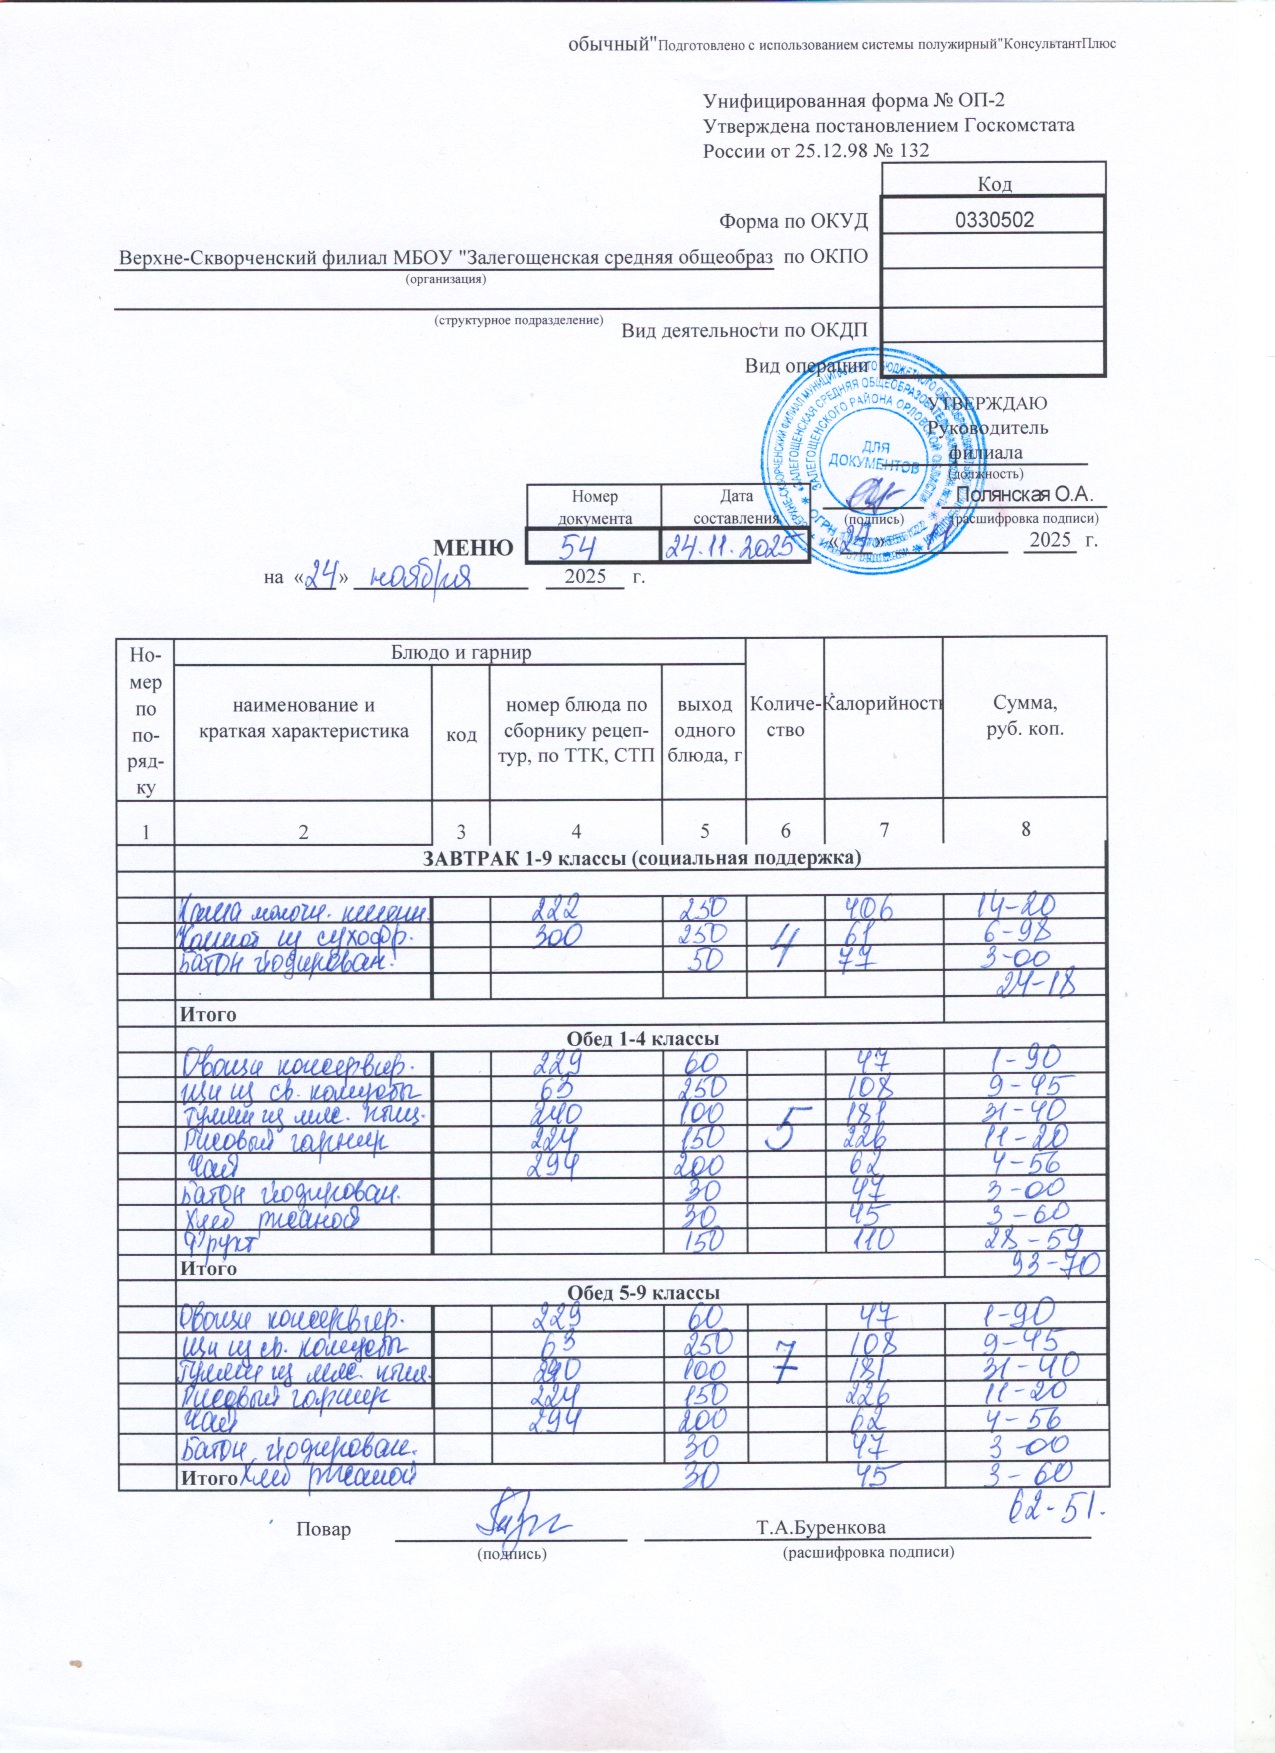 обычный"Подготовлено с использованием системы полужирный"КонсультантПлюс
Унифицированная форма № ОП-2
Утверждена постановлением Госкомстата
России от 25.12.98 № 132
Код
Форма по ОКУД 0330502
Верхне-Скворченский филиал МБОУ "Залегощенская средняя общеобраз по ОКПО
(организация)
(структурное подразделение)
Вид деятельности по ОКДП
Вид операции
УТВЕРЖДАЮ
Руководитель
филиала
(должность)
ДЛЯ
ДОКУМЕНТОВ
Полянская О.А.
(подпись) (расшифровка подписи)
Номер документа Дата составления
МЕНЮ 54 24.11.2025
«24» 11 2025 г.
на «24» ноября 2025 г.
Но-мер по по-ряд-ку Блюдо и гарнир Количе-ство Калорийность Сумма, руб. коп.
наименование и краткая характеристика код номер блюда по сборнику рецеп-тур, по ТТК, СТП выход одного блюда, г
1 2 3 4 5 6 7 8
ЗАВТРАК 1-9 классы (социальная поддержка)
Каша молочн. 222 250 406 14-20
Компот из сухофр. 300 250 4 61 6-98
Батон йодирован. 50 77 3-00
24-18
Итого
Обед 1-4 классы
Овощи консервир. 229 60 47 1-90
Щи из св. капусты 63 250 108 9-45
Гуляш из мяс. птиц. 240 100 181 31-40
Рисовый гарнир 224 150 5 226 11-20
Чай 294 200 62 4-56
Батон йодирован. 30 47 3-00
Хлеб ржаной 30 45 3-60
Фрукт 150 110 28-59
Итого 93-70
Обед 5-9 классы
Овощи консервир. 229 60 47 1-90
Щи из св. капусты 63 250 108 9-45
Гуляш из мяс. птиц. 100 7 181 31-40
Рисовый гарнир 224 150 226 11-20
Чай 294 200 62 4-56
Батон йодирован. 30 47 3-00
Итого Хлеб ржаной 30 45 3-60
62-51.
Повар Т.А.Буренкова
(подпись) (расшифровка подписи)